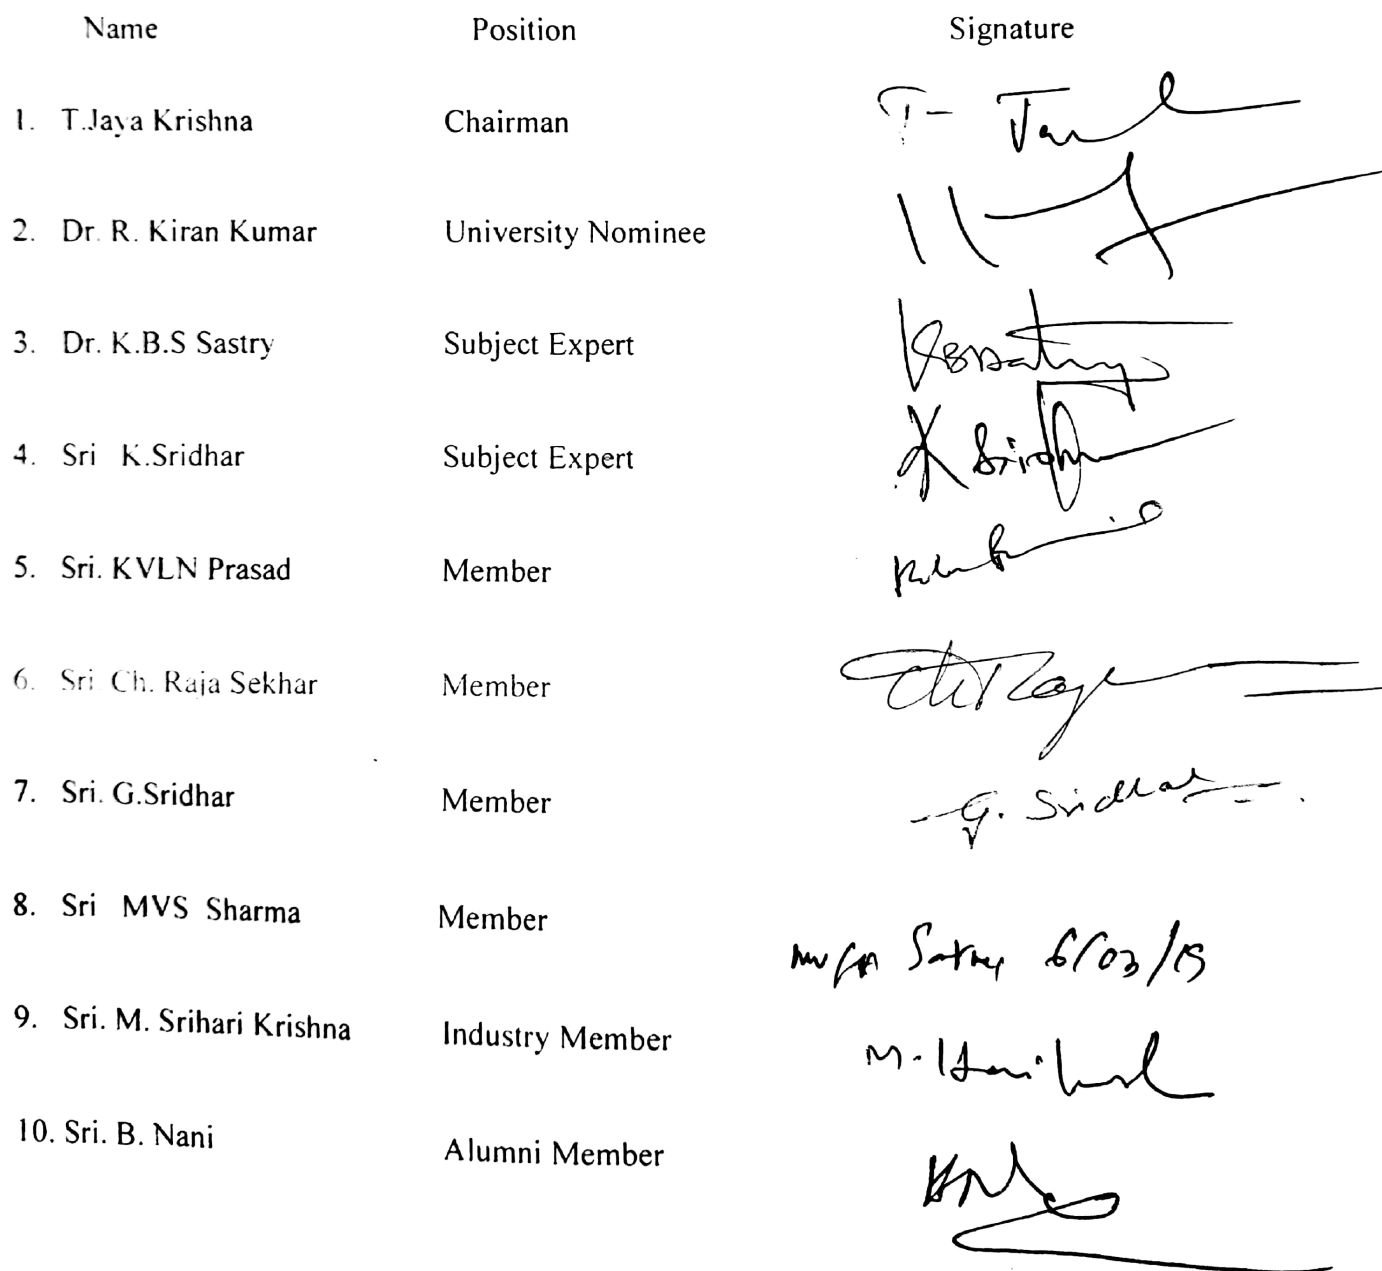 Name Position Signature
1. T.Jaya Krishna Chairman T- Ja
2. Dr. R. Kiran Kumar University Nominee
3. Dr. K.B.S Sastry Subject Expert KBSSastry
4. Sri K.Sridhar Subject Expert K Sridh
5. Sri. KVLN Prasad Member
6. Sri. Ch. Raja Sekhar Member Ch Raja
7. Sri. G.Sridhar Member G. Sridhar
8. Sri MVS Sharma Member 6/03/19
9. Sri. M. Srihari Krishna Industry Member M. Hari
10. Sri. B. Nani Alumni Member